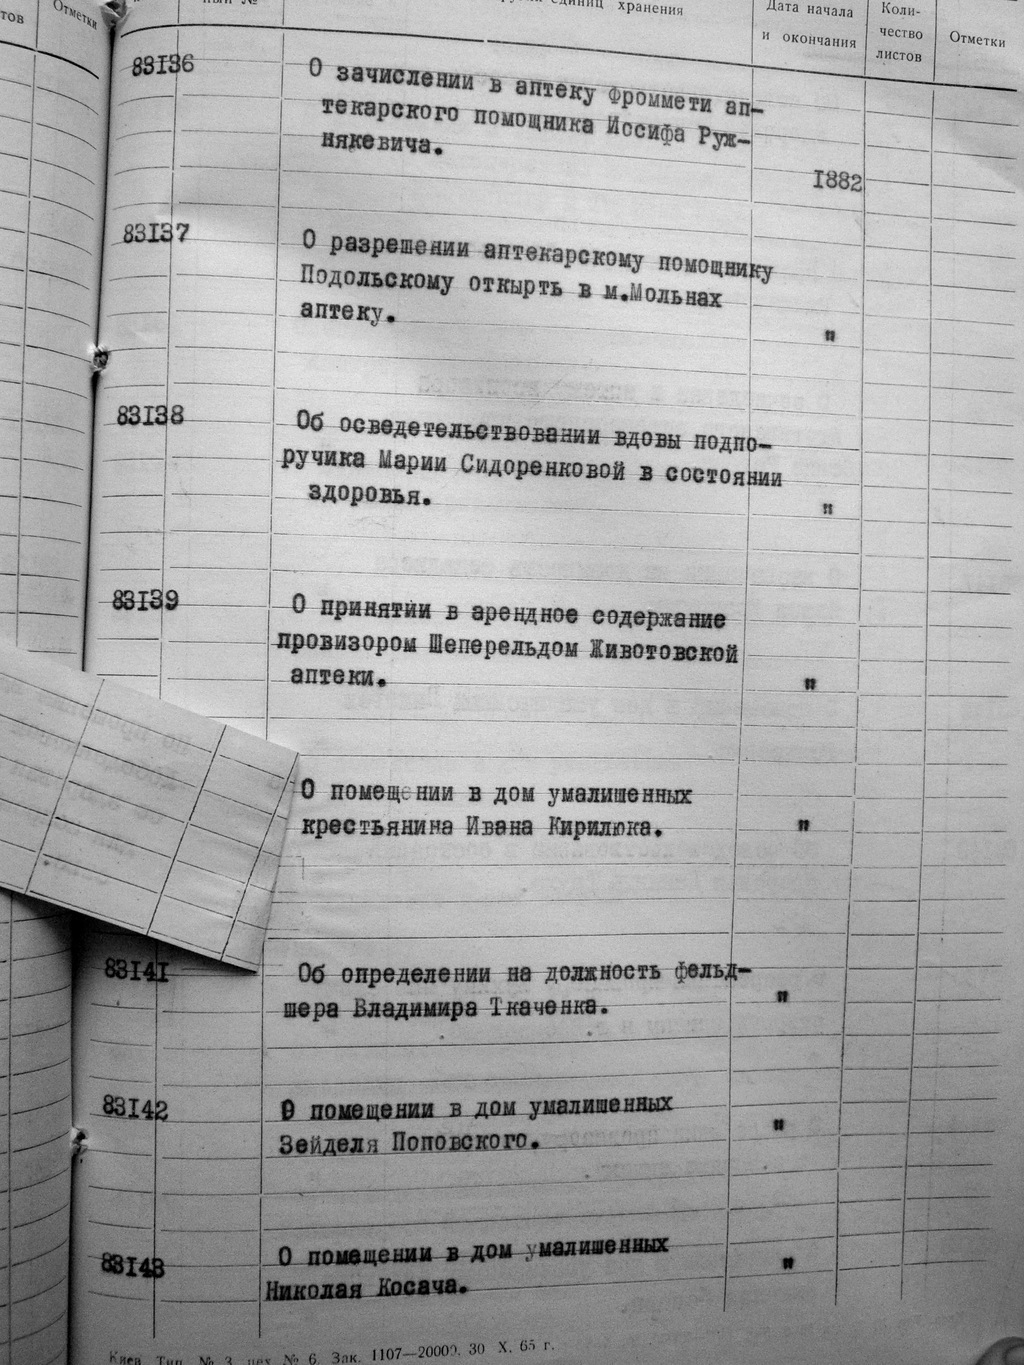 тов
Отметки
ный №
единиц хранения
Дата начала
и окончания
Коли-
чество
листов
Отметки
83136
О зачислении в аптеку Фроммети ап-
текарского помощника Иосифа Руж-
някевича.
1882
83137
О разрешении аптекарскому помощнику
Подольскому откырть в м.Мольнах
аптеку.
"
83138
Об осведетельствовании вдовы подпо-
ручика Марии Сидоренковой в состоянии
здоровья.
"
83139
О принятии в арендное содержание
провизором Шеперельдом Животовской
аптеки.
"
О помещении в дом умалишенных
крестьянина Ивана Кирилюка.
"
83141
Об определении на должность фельд-
шера Владимира Ткаченка.
"
83142
О помещении в дом умалишенных
Зейделя Поповского.
"
83143
О помещении в дом умалишенных
Николая Косача.
"
Киев. Тип. № 3, цех № 6. Зак. 1107—20000. 30 X. 65 г.